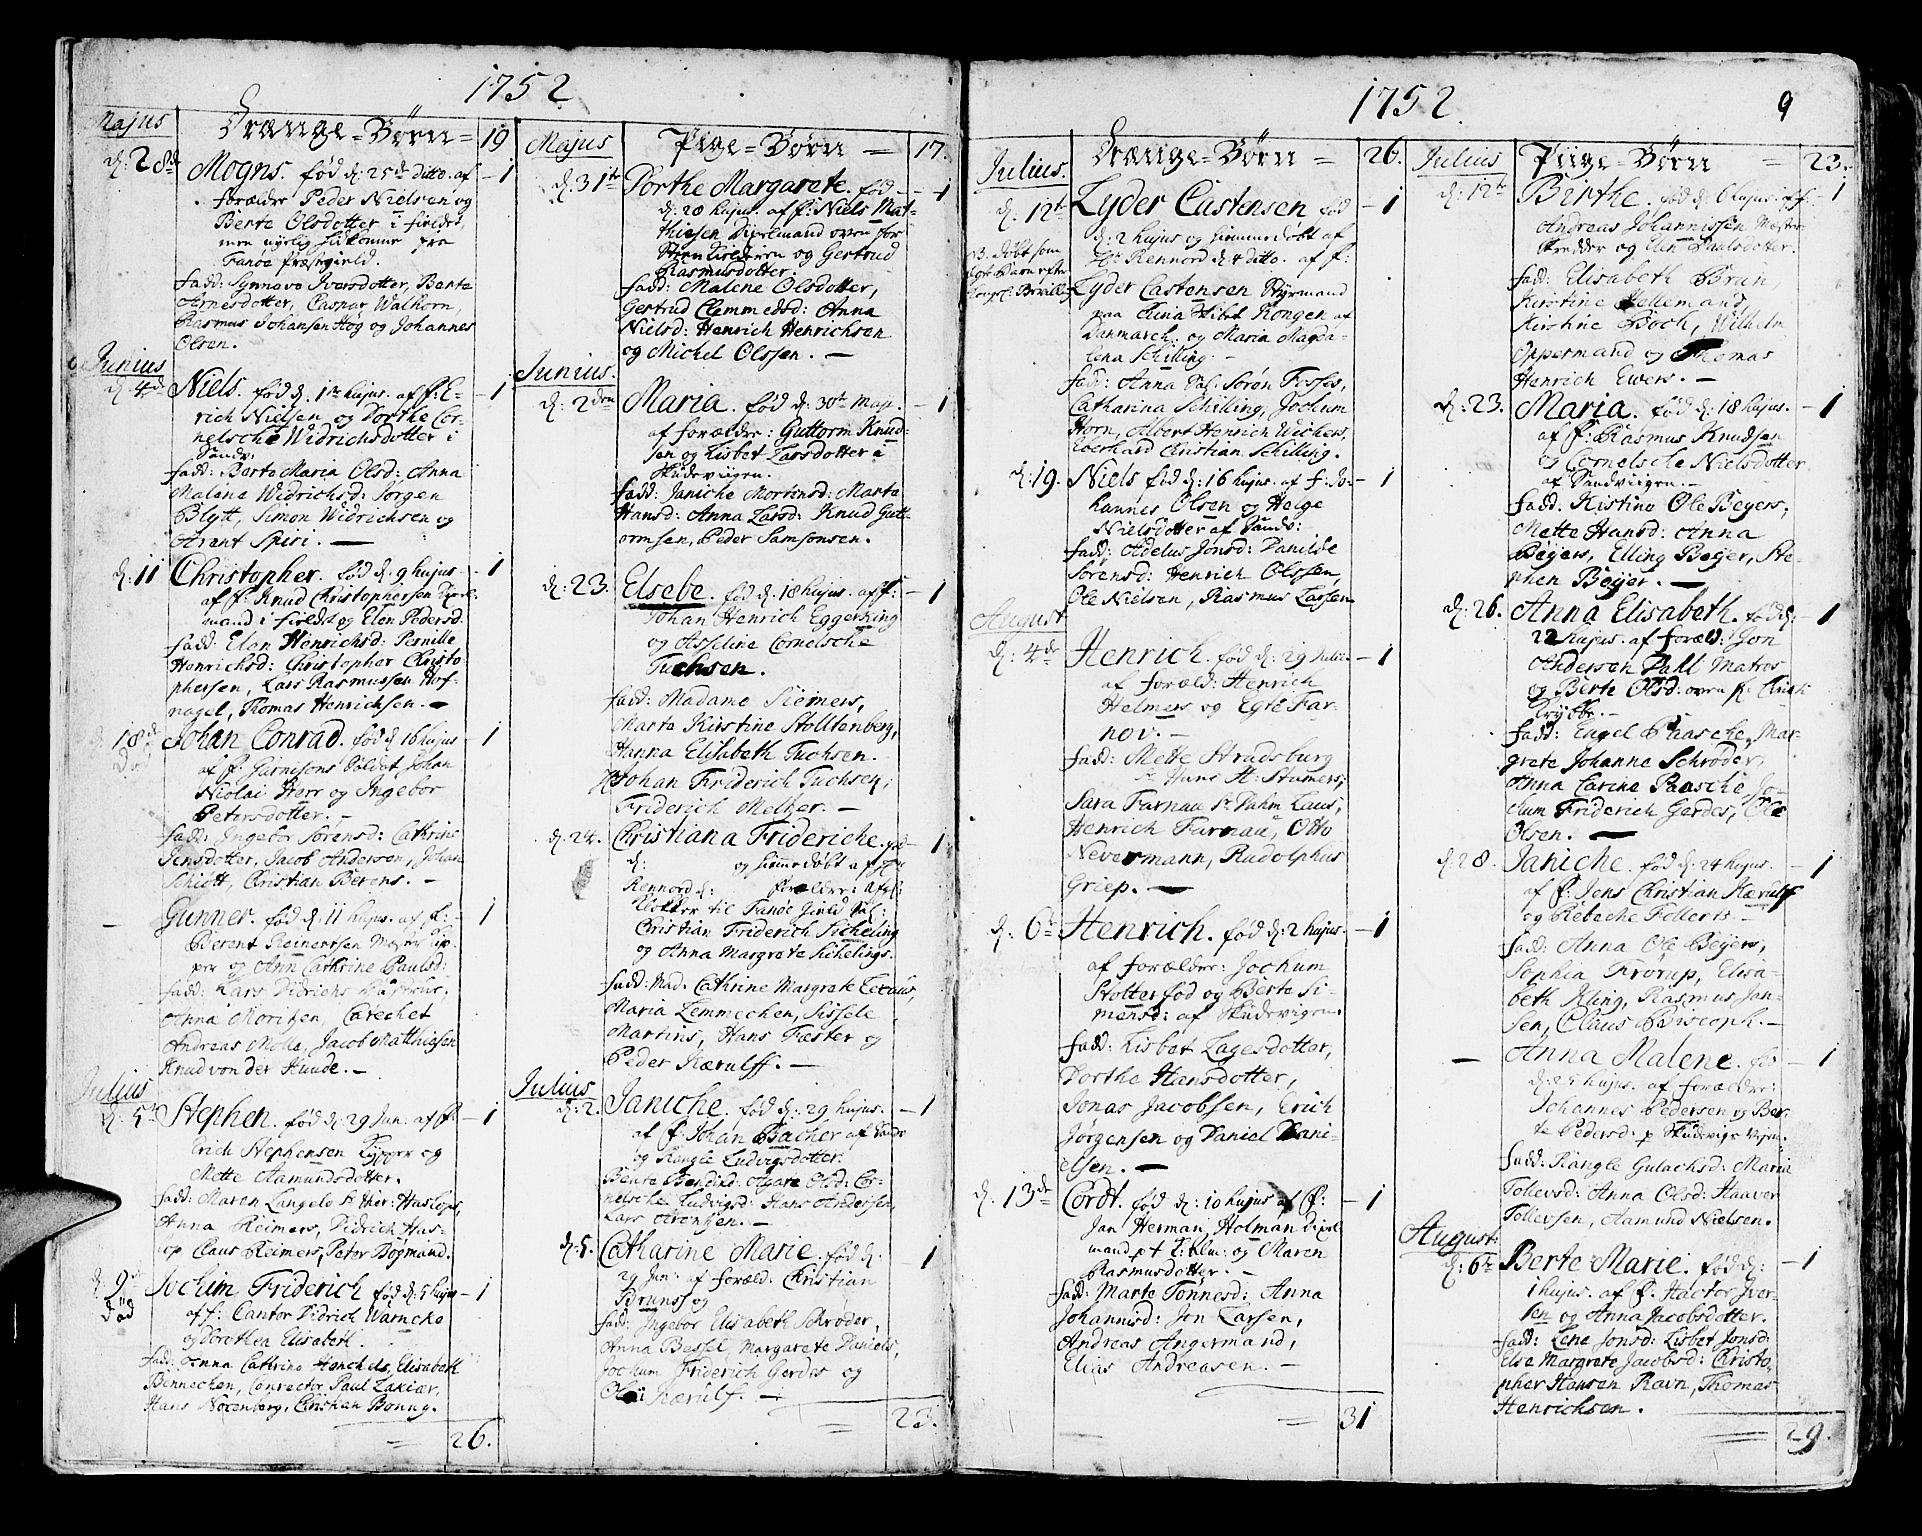 1752
Majus
Drænge=Børn= 19
d: 28de Mogns. fød d: 25de ditto. af 1
forældre Peder Nielsen og
Berte Olsdotter i fieldet,
men nylig hidkomne fra
Fanøe Præstegield.
fadd: Synneve Iversdotter, Berte
Arnesdotter, Caspar Walhorn,
Rasmus Johansen Høg og Johannes
Olsen.
Junius
d: 4de Niels. fød d: 1ste hujus. af f: E- 1
rich Nielsen og Dorthe Cor-
nelsche Widrichsdotter i
Sandv:
fadd: Berte Maria Olsd: Anna
Malene Widrichsd: Jørgen
Blytt, Simon Widrichsen og
Arent Spiri. —
d: 11 Christopher. fød d: 9 hujus. 1
af f: Knud Christophersen
mand i fieldet og Elen Pedersd.
fadd: Elen Henrichsd: Pernille
Henrichsd: Christopher Christo-
phersen, Lars Rasmussen Hof-
nagel, Thomas Henrichsen. —
18de Johan Conrad. fød d: 16 hujus 1
af f: Garnisons Soldat, Johan
Nicolai Herr og Ingebor
Petersdotter. —
fadd: Ingebor Sorensd: Cathrine
Jensdotter, Jacob Andersen, Johan
Schiött, Christian Berens. —
— Gunner. fød d: 11 hujus. af f: 1
Berent Reinertsen
per og Ann Cathrine Paulsd:
fadd: Lars Didrichs
Anna Moritzen,
Andreas Molle, Jacob Matthiesen
Knud von der Huude. —
Julius
d: 5te Stephen. fød d: 29 Jun. af f: 1
Erich Stephensen og
Mette Aamundsdotter.
fadd: Maren Langelo
Anna Reimers, Didrich Has-
lop Claus Reimers, Peter Bøgmand.
d: 9 Jochim Friderich fød d: 5 hujus 1
død
af f: Cantor Didrich Warncke
og Dorothea Elisabeth.
fad: Anna Cathrine Henchels, Elisabeth
Bennechen, Conrector Paul
Hans Nörenberg, Christian Bonng.
= 26.
Majus
Pige=Børn = 17.
d: 31te Dorthe Margarete. fød 1
d: 28 hujus. af f: Niels Mat-
thiesen Digelmand oven for
og Gertrud
Rasmusdotter.
fadd: Malene Olsdotter,
Gertrud Clemmedsd: Anna
Nielsd: Henrich Henrichsen
og Michel Olssen. —
Junius.
d: 2den Maria. fød d: 30te Maji. 1
af forældre: Guttorm Knud-
sen og Lisbet Larsdotter i
Skudeviigen.
fadd: Janiche Mortensd: Marte
Hansd: Anna Larsd: Knud Gutt-
ormsen, Peder Samsonsen.
d: 23. Elsebe. fød d: 18 hujus. af f: 1
Johan Henrich Eggerking
og Asseline Cornelsche
Tuchsen.
fadd: Madame Siemers,
Marta Kirstine Stolltenberg,
Hanna Elisabeth Tuchsen.
Johan Friderich Tuchsen,
Friderich Meltzer. —
d: 24. Christiana Friderich. fød 1
d: og hiemmedøbt af
Rennord d: forældre:
Klokker til Fanøe Gield
Christian Friderich Sicheling
og Anna Margrete Sichelings.
fadd: Mad. Cathrine Margrete
Maria Lemmechen, Sissele
Martins, Hans Fæster og
Peder Kærulff. —
Julius
d: 2. Janiche. fød d: 29 hujus. 1
af f: Johan Bacher af Sandv
og Rangle Ludvigsdotter.
Bente Bendixd: Agare Olsd: Cor-
nelske Ludvigsd: Hans Andersen,
Lars Arentzen. —
d: 5. Catharine Marie. fød d: 1
29 Jun: af foræld. Christian
Brunss og
fadd: Ingebor Elisabeth Schrøder,
Anna Bessel, Margarete Daniels,
Jochum Friderich Gerdes og
Ole Kærulf. —
= 23.
1752.
9
Julius.
Drænge=Børn = 26.
d: 12te Lyder Castensen fød 1
d: 2 hujus og hiemmedøbt af
Rennord d: 4 ditto. af f:
Lyder Castensen Styrmand
paa China Skibet Kongen af
Danmarch og Maria Magda-
lena Schilling. —
NB. døbt som
fadd: Anna Sal. Sorøn Fosses,
Catharina Schilling, Jochum
Horn, Albert Henrich Wichers,
Eberhard Christian Schilling.
d: 19. Niels fød d: 16 hujus. af f: Jo- 1
hannes Olsen og Helge
Nielsdotter af Sandv:
fadd: Adelus Jonsd: Danilde
Sorensd: Henrich Olssen,
Ole Nielsen, Rasmus Larsen
August
d: 4de Henrich. fød d: 29 Julii. 1
af foræld: Henrich
Helmers og Egte Far-
nov. —
fadd: Mette Stradsburg
Sr Hans H: Stumers,
Sara Farnau Sr Dahm Laus,
Henrich Farnau, Otto
Nevermann, Rudolphus
Griep. —
d: 6te Henrich. fød d: 2 hujus. 1
af forældre: Jochum
Stolterfod og Berte Si-
mensd: af Skudevigen.
fadd: Lisbet Lagesdotter,
Dorthe Hansdotter,
Jonas Jacobsen, Erich
Jørgensen og Daniel Dani-
elsen. —
d: 13de Cordt. fød d: 10 hujus af f: 1
Jan Herman Holman
mand og Maren
Rasmusdotter. —
fadd: Marte Tonnesd: Anna
Johannisd: Jon Larsen,
Andreas Angermand,
Elias Andreasen. —
= 31
Julius
Piige=Børn = 23.
d: 12te Berthe. fød d: 6 hujus. af f: 1
Andreas Johannissen Mester
Skredder og Elen Poulsdotter.
fadd: Elisabeth Brun
Kirstine Hellemand,
Kirstine Boch, Wilhelm
Oppermand og Thomas
Henrich Ewers. —
d: 23. Maria. fød d: 18 hujus. 1
af f: Rasmus Knudsen
og Cornelsche Nielsdotter
af Sandviigen. —
fadd. Kistine Ole Beyers,
Mette Hansd: Anna
Beyers, Elling Beyer, Ste-
phen Beyer. —
d: 26. Anna Elisabeth. fød d: 1
22 hujus. af foræld: Jon
Andersen Dahl Matros
og Berte Olsd: oven
Trybbe. —
fadd: Engel Paasche, Mar-
grete Johanne Schrøder,
Anna Carine Paasche, Jo-
chum Friderich Gerdes, Ole
Olsen. —
d: 28. Janiche. fød d: 24 hujus. 1
af f: Jens Christian Kærulf
og Rebeche Follerts. —
fadd: Anna Ole Beyers,
Sophia Krörup, Elisa-
beth Kling, Rasmus Jan-
sen, Claus Bischoph. —
— Anna Malene. fød 1
d: 25 hujus. af forældre:
Johannes Pedersen og Ber-
te Pedersd: p Skudevigs Vejen.
fadd: Rangle Gulachsd: Maria
Tollevsd: Anna Olsd: Haaver
Tollevsen, Aamund Nielsen.
August:
d: 6te Berte Marie. fød d: 1
1 hujus. af f. Hactor Iver-
sen og Anna Jacobsdotter.
fadd: Lene Jonsd: Lisbet Jonsd:
Else Margrete Jacobsd: Christo-
pher Hansen Ravn, Thomas
Henrichsen.
29.